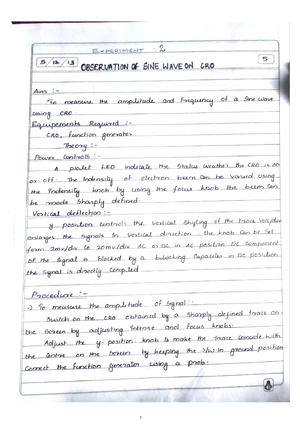 EXPERIMENT : 2
5/12/13
OBSERVATION OF SINE WAVE ON CRO
5
Aim :-
To measure the amplitude and frequency of a Sine wave
using CRO
Equipements Required :-
CRO, Function generator
Theory :-
Power Controls :-
A LED indicate the Status weather the CRO is on
or off. The Indensity of electron beam Can be varied Using
the Indensity knob by using the focus knob the beam can
be made Sharply defined.
Vertical deflection :-
y position Controls the Vertical of the trace
enlarges the Signals in Vertical direction the knob Can be Set
form 2mv/div to 20mv/div AC or DC in AC position DC Component
of the Signal is blocked by a blocking Capacitor in DC position
the Signal is directly
Procedure :-
To measure the amplitude of Signal :
Switch on the CRO obtained by a Sharply defined trace on
the Screen by adjusting Intense and focus knobs.
Adjust the y-position knob to make the trace with
the Centre on the Screen by keeping the in ground position
Connect the function generator using a prob.